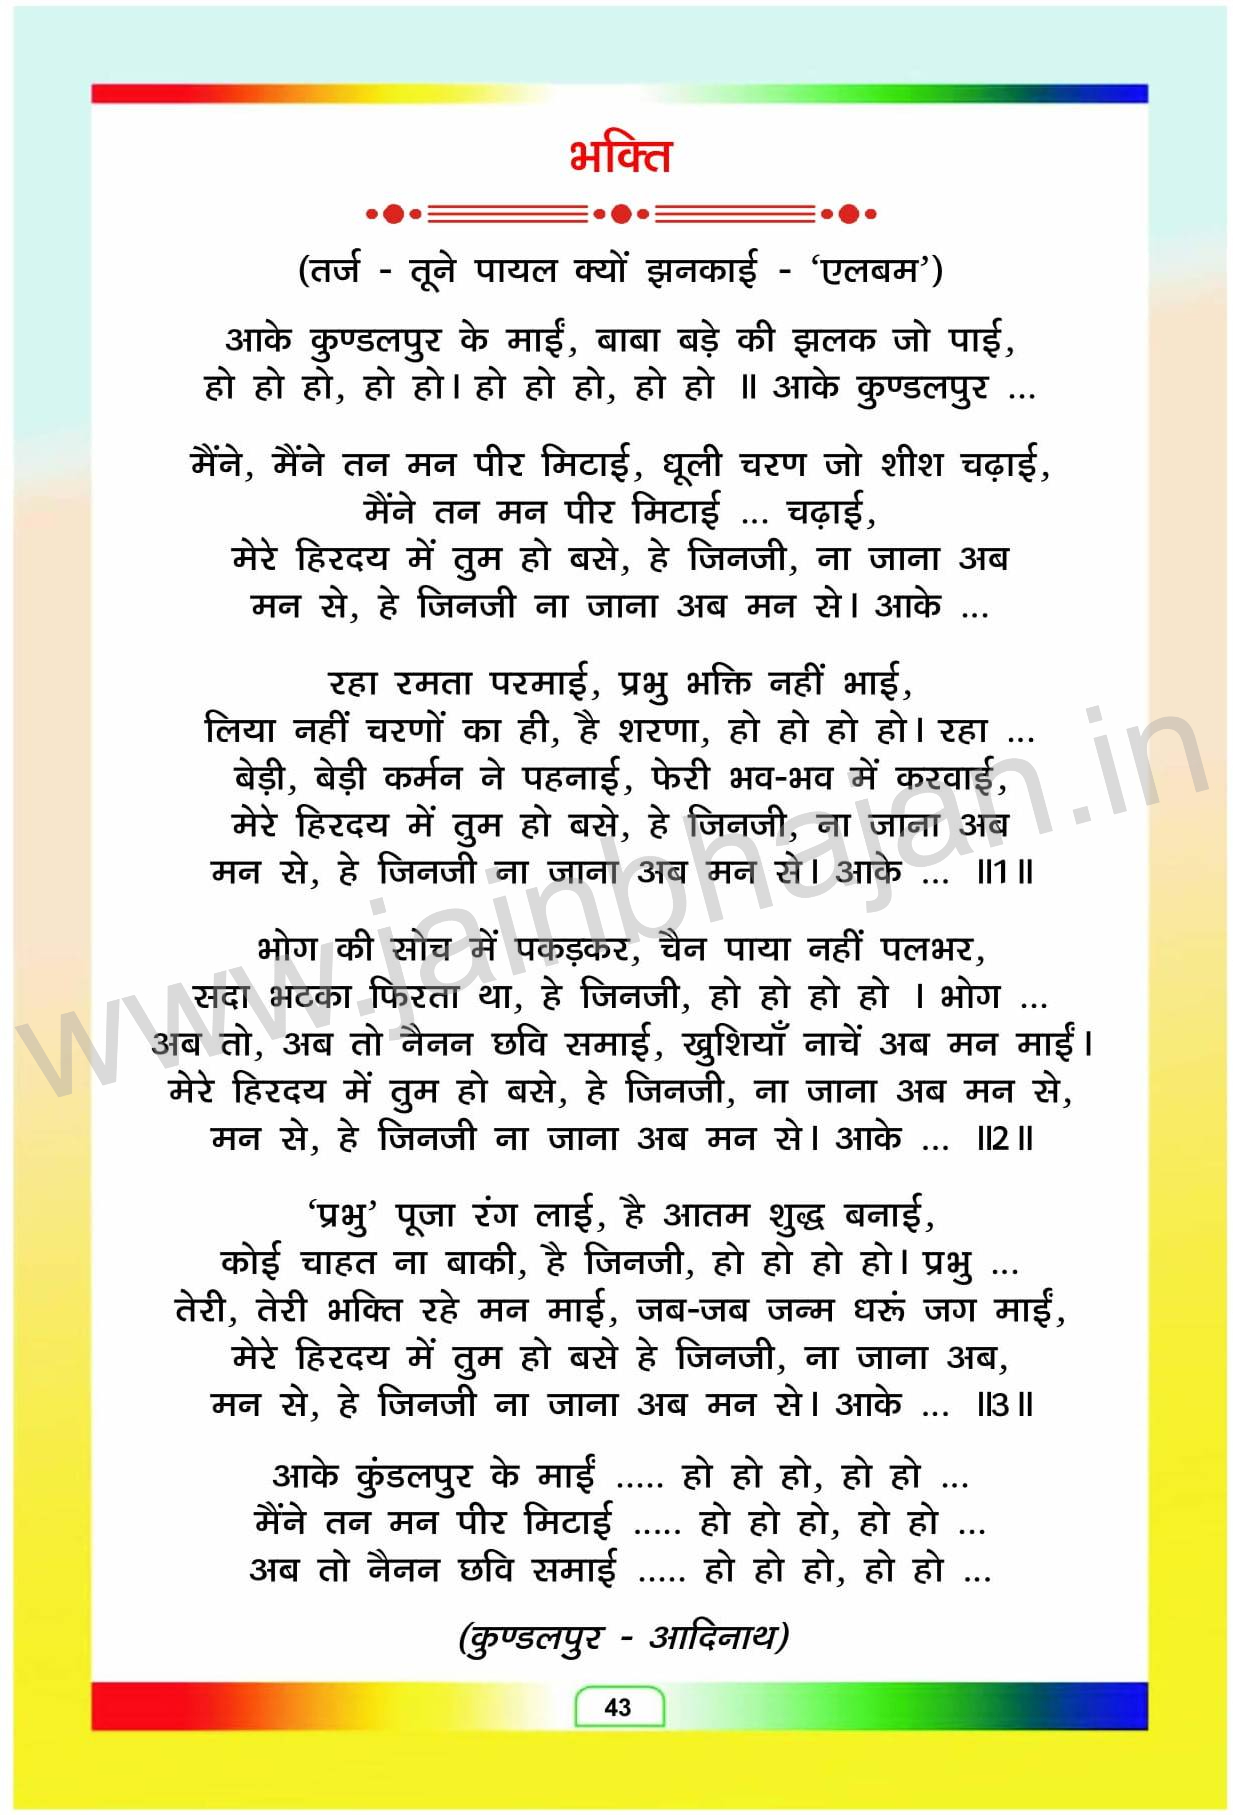 भक्ति
(तर्ज - तूने पायल क्यों झनकाई - ‘एलबम’)
आके कुण्डलपुर के माईं, बाबा बड़े की झलक जो पाई,
हो हो हो, हो हो। हो हो हो, हो हो ॥ आके कुण्डलपुर ...
मैंने, मैंने तन मन पीर मिटाई, धूली चरण जो शीश चढ़ाई,
मैंने तन मन पीर मिटाई ... चढ़ाई,
मेरे हिरदय में तुम हो बसे, हे जिनजी, ना जाना अब
मन से, हे जिनजी ना जाना अब मन से। आके ...
रहा रमता परमाई, प्रभु भक्ति नहीं भाई,
लिया नहीं चरणों का ही, है शरणा, हो हो हो हो। रहा ...
बेड़ी, बेड़ी कर्मन ने पहनाई, फेरी भव-भव में करवाई,
मेरे हिरदय में तुम हो बसे, हे जिनजी, ना जाना अब
मन से, हे जिनजी ना जाना अब मन से। आके ... ॥1॥
भोग की सोच में पकड़कर, चैन पाया नहीं पलभर,
सदा भटका फिरता था, हे जिनजी, हो हो हो हो । भोग ...
अब तो, अब तो नैनन छवि समाई, खुशियाँ नाचें अब मन माईं।
मेरे हिरदय में तुम हो बसे, हे जिनजी, ना जाना अब मन से,
मन से, हे जिनजी ना जाना अब मन से। आके ... ॥2॥
‘प्रभु’ पूजा रंग लाई, है आतम शुद्ध बनाई,
कोई चाहत ना बाकी, है जिनजी, हो हो हो हो। प्रभु ...
तेरी, तेरी भक्ति रहे मन माई, जब-जब जन्म धरूं जग माईं,
मेरे हिरदय में तुम हो बसे हे जिनजी, ना जाना अब,
मन से, हे जिनजी ना जाना अब मन से। आके ... ॥3॥
आके कुंडलपुर के माईं ..... हो हो हो, हो हो ...
मैंने तन मन पीर मिटाई ..... हो हो हो, हो हो ...
अब तो नैनन छवि समाई ..... हो हो हो, हो हो ...
(कुण्डलपुर - आदिनाथ)
43
www.jainbhajan.in